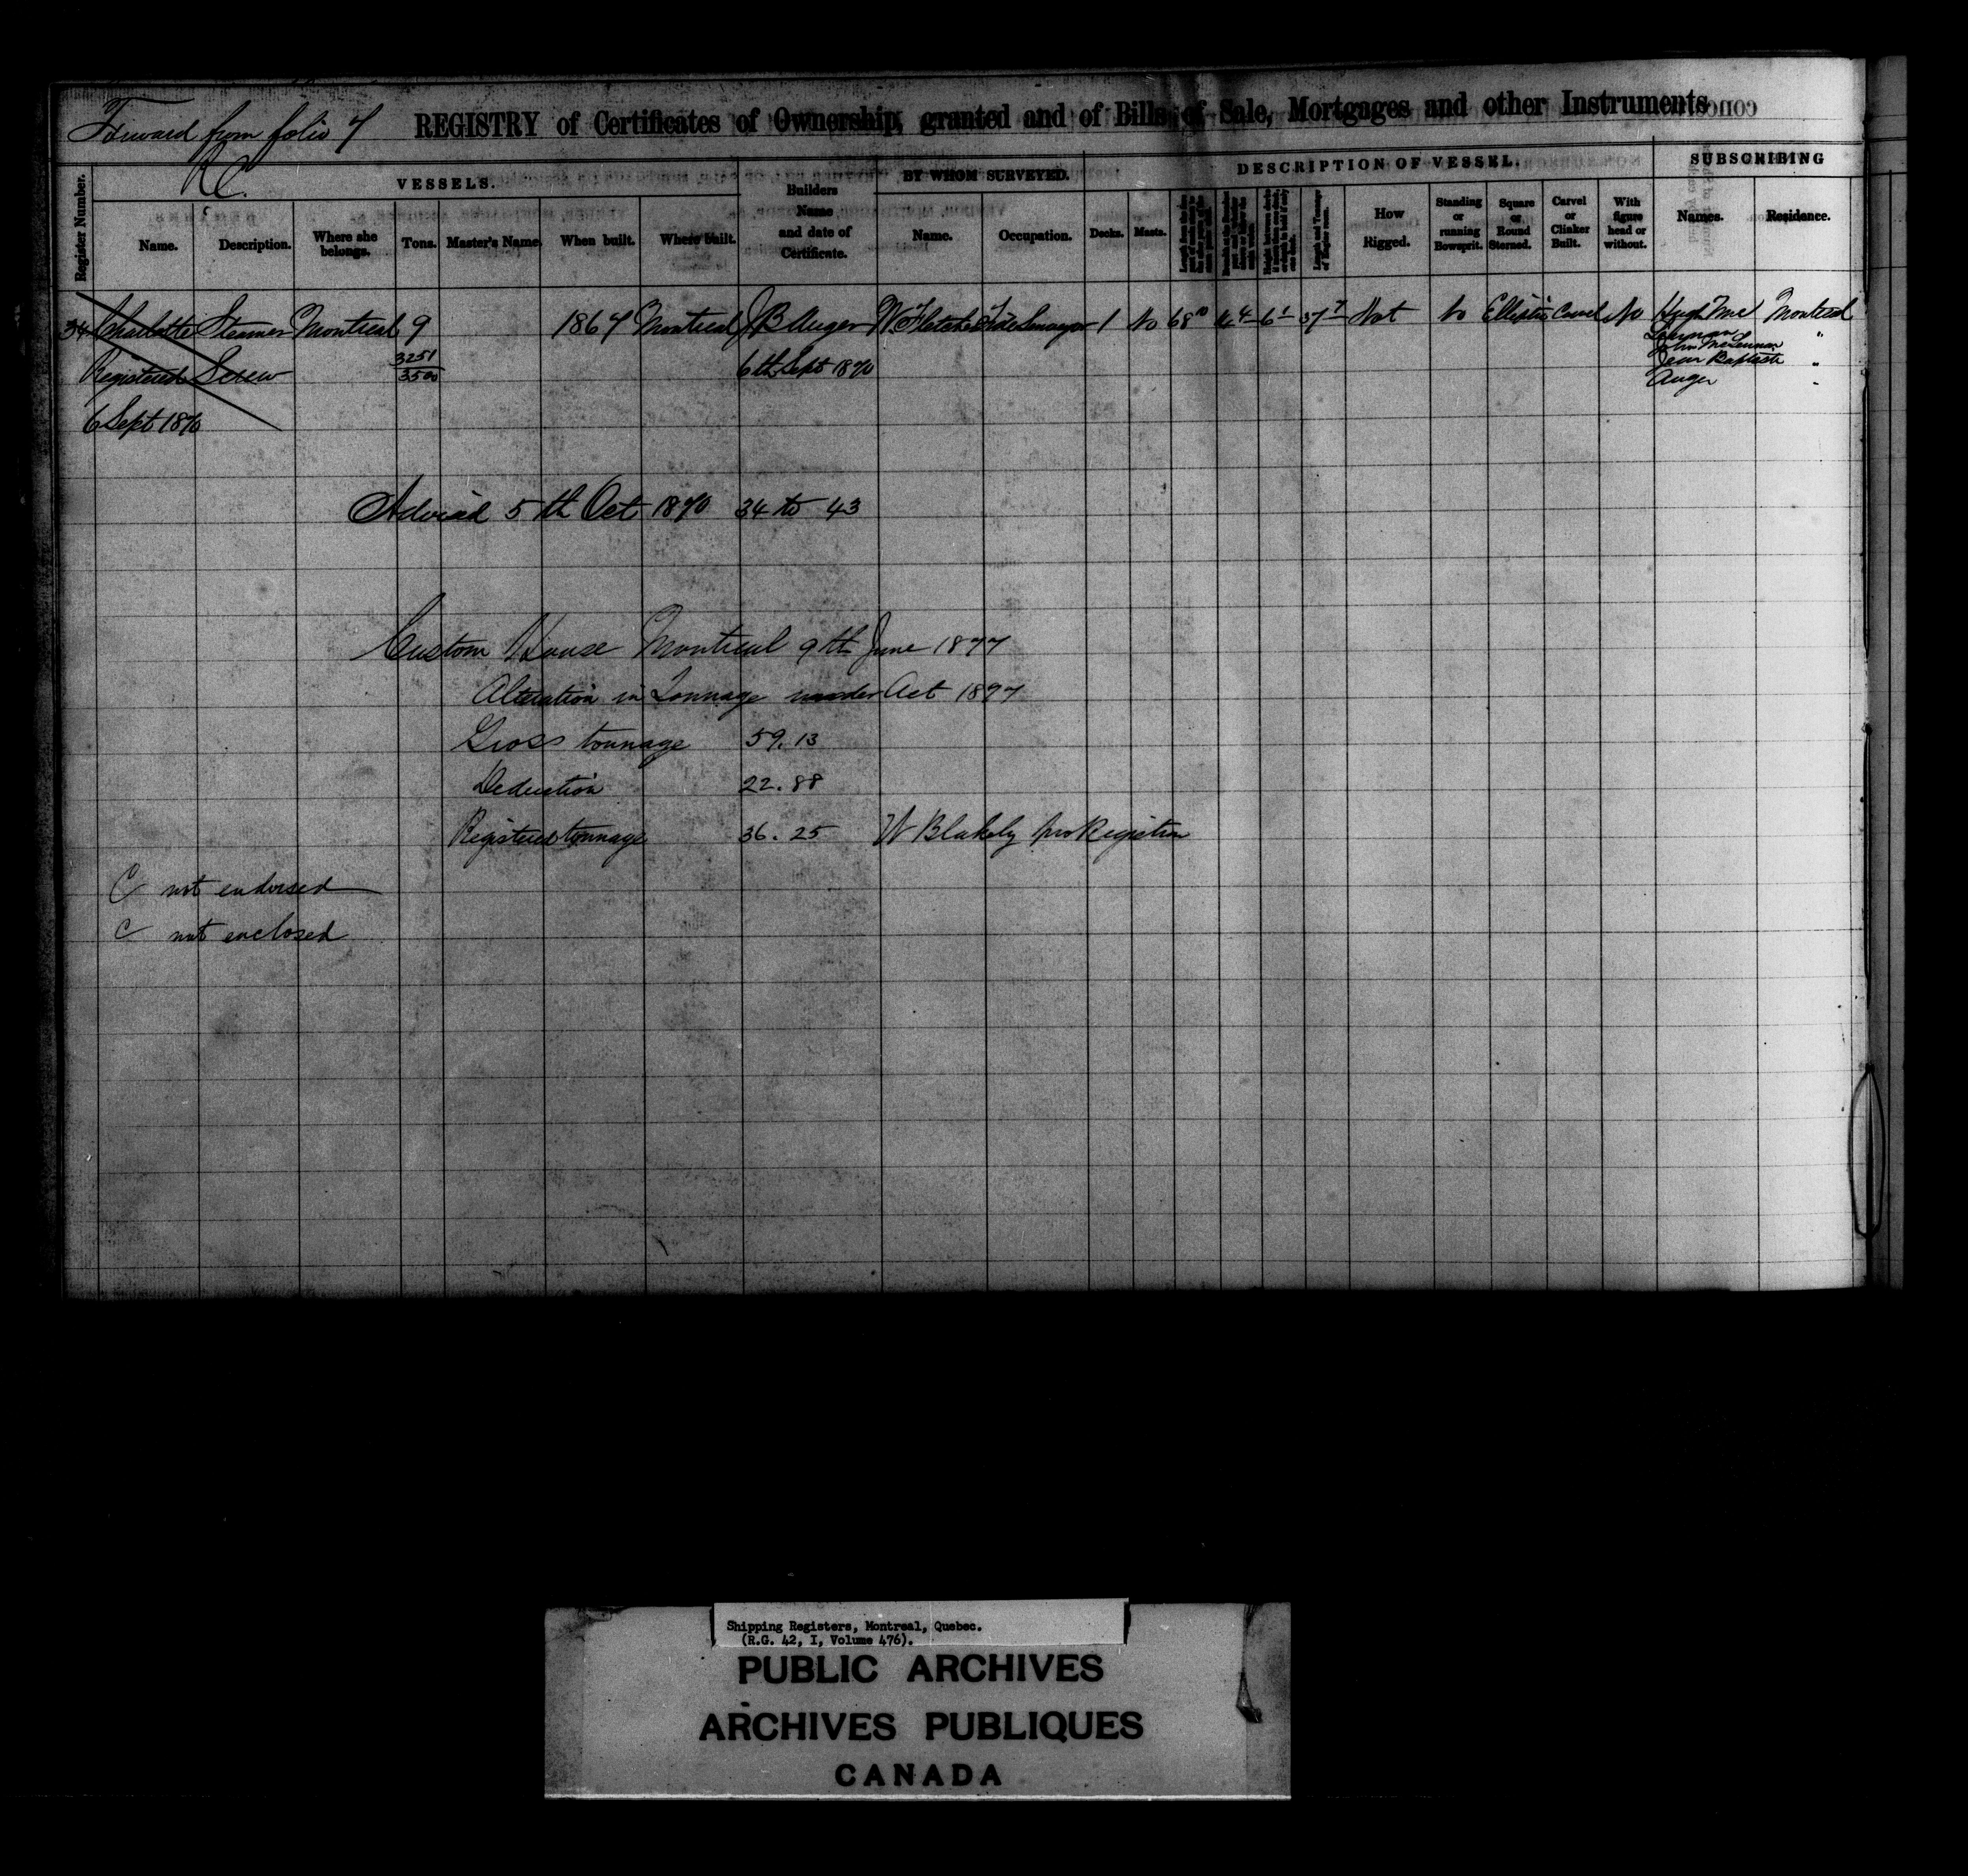 Forward from folio 7 REGISTRY of Certificates of Ownership, granted and of Bills of Sale, Mortgages and other Instruments
R C.
VESSELS. BY WHOM SURVEYED. DESCRIPTION OF VESSEL. SUBSCRIBING
Register Number. Name. Description. Where she belongs. Tons. Master's Name. When built. Where built. Builders Name and date of Certificate. Name. Occupation. Decks. Masts. How Rigged. Standing or running Bowsprit. Square or Round Sterned. Carvel or Clinker Built. With figure head or without. Names. Residence.
34 Charlotte Steamer Montreal 9 1867 Montreal J B Auger W Fletcher 1 No 68 6 1 37 7 Not No Elliptic Carvel No Hugh Mc Montreal
Lennan "
John McLennan
Registered Screw 3251 6th Sept 1870 Jean Baptiste "
3500 Auger "
6 Sept 1870
Advised 5th Oct 1870 34 to 43
Custom House Montreal 9th June 1877
Alteration in Tonnage under Act 1897
Gross tonnage 59.13
Deduction 22.88
Registered tonnage 36.25 W Blakely pro Registrar
C not endorsed
C not enclosed
Shipping Registers, Montreal, Quebec.
(R.G. 42, I, Volume 476).
PUBLIC ARCHIVES
ARCHIVES PUBLIQUES
CANADA